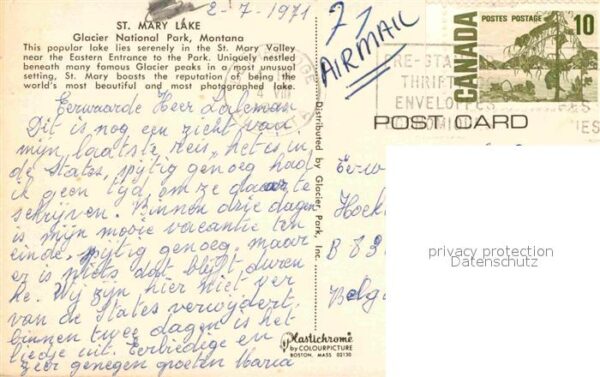 2-7-1971
ST. MARY LAKE
Glacier National Park, Montana
This popular lake lies serenely in the St. Mary Valley
near the Eastern Entrance to the Park. Uniquely nestled
beneath many famous Glacier peaks in a most unusual
setting, St. Mary boasts the reputation of being the
world's most beautiful and most photographed lake.
71
AIRMAIL
CANADA
POSTES POSTAGE
10
PRE-STAMPED
THRIFT
ENVELOPPES
POST CARD
Eerwaarde Heer Daleman
Dit is nog een zicht van
mijn laatste reis, het is in
de States, spijtig genoeg had
ik geen tijd om ze daar te
schrijven. Binnen drie dagen
is mijn mooie vacantie ten
einde, spijtig genoeg, maar
er is niets dat blijft duren
he. Wij zijn hier niet ver
van de States verwijdert,
binnen twee dagen is het
liedje uit. Eerbiedige en
zeer genegen groeten Maria
Distributed by Glacier Park, Inc.
Plastichrome
by COLOURPICTURE
BOSTON, MASS 02130
Eerw
Hoek
B 83
Belg
privacy protection
Datenschutz